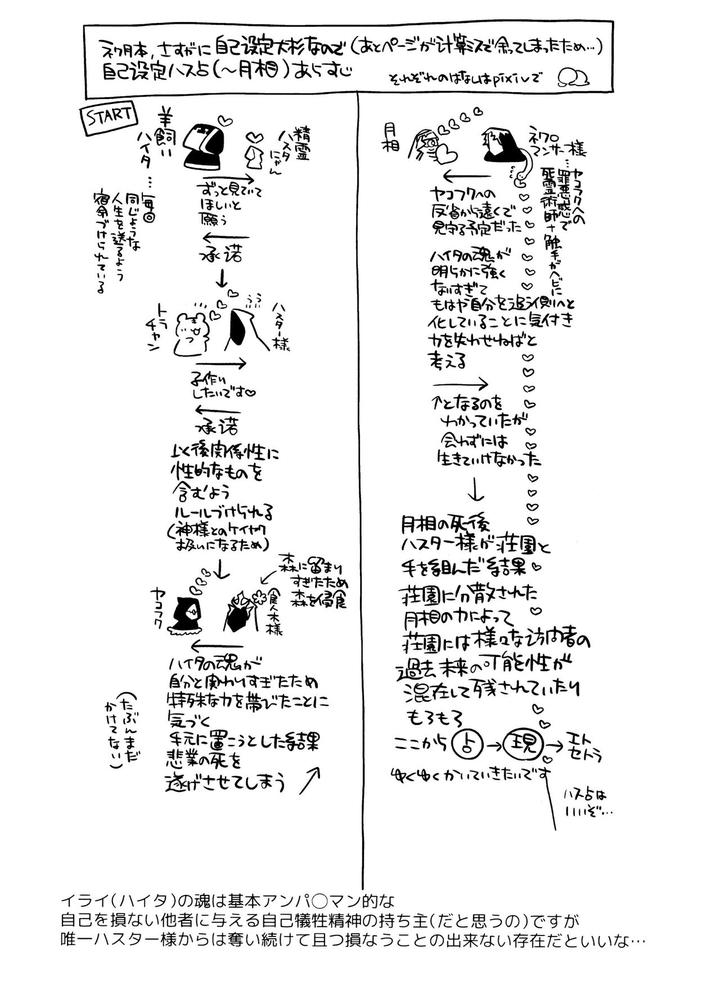 ネク月本，さすがに自己設定大杉なので（あとページが計算ミスで余ってしまったため…）
自己設定ハス占（～月相）あらすじ
それぞれのはなしはpixivで
START
羊飼い
ハイタ
…毎回
同じような
人生を送るよう
宿命づけられている
精霊
ハスタにゃん
ずっと見ていて
ほしいと
願う
承諾
トラチャン
ハスター様
子作り
したいです♡
承諾
以後関係性に
性的なものを
含むよう
ルールづけられる
（神様とのケイヤク
扱いになるため）
森に留まり
すぎたため
森を侵食
ヤコフク
食人木様
ハイタの魂が
自分と関わりすぎたため
特殊な力を帯びたことに
気づく
手元に置こうとした結果
悲業の死を
遂げさせてしまう
（たぶんまだ
かけてない）
月相
ネクロ
マンサー様
…ヤコフクへの
罪悪感で
死霊術師＋
触手がヘビに
ヤコフクへの
反省から遠くで
見守る予定だった
ハイタの魂が
明らかに強く
なりすぎて
もはや自分を追う側へと
化していることに気付き
力を失わせねばと
考える
↑となるのを
わかっていたが
会わずには
生きていけなかった
月相の死後
ハスター様が荘園と
手を組んだ結果
荘園に分散された
月相の力によって
荘園には様々な訪問者の
過去未来の可能性が
混在して残されていたり
もろもろ
ここから占→現→エト
セトラ
ゆくゆくかいていきたいです
ハス占は
いいぞ…
イライ（ハイタ）の魂は基本アンパ◯マン的な
自己を損ない他者に与える自己犠牲精神の持ち主（だと思うの）ですが
唯一ハスター様からは奪い続けて且つ損なうことの出来ない存在だといいな…